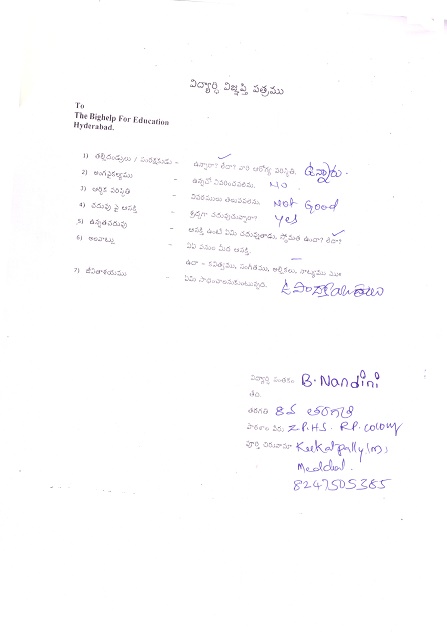 విద్యార్థి విజ్ఞప్తి పత్రము
To
The Bighelp For Education
Hyderabad.
1) తల్లిదండ్రులు / సంరక్షకుడు - ఉన్నారా? లేదా? వారి ఆరోగ్య పరిస్థితి. ఉన్నారు.
2) అంగవైకల్యము - ఉన్నచో వివరించవలెను. No
3) ఆర్థిక పరిస్థితి - వివరములు తెలుపవలెను. Not Good
4) చదువు పై ఆసక్తి - శ్రద్ధగా చదువుచున్నారా? Yes
5) ఉన్నతచదువు - ఆసక్తి ఉంటే ఏమి చదువుతాడు. స్తోమత ఉందా? లేదా?
6) అలవాట్లు - ఏఏ పనుల మీద ఆసక్తి.
ఉదా - కవిత్వము, సంగీతము, ఆర్టికలు, నాట్యము మొ॥
7) జీవితాశయము - ఏమి సాధించాలనుకుంటున్నది.
విద్యార్థి సంతకం B. Nandini
తేది.
తరగతి 8వ తరగతి
పాఠశాల పేరు Z.P.H.S. R.P. Colony
పూర్తి చిరునామా
Medchal.
8247505385